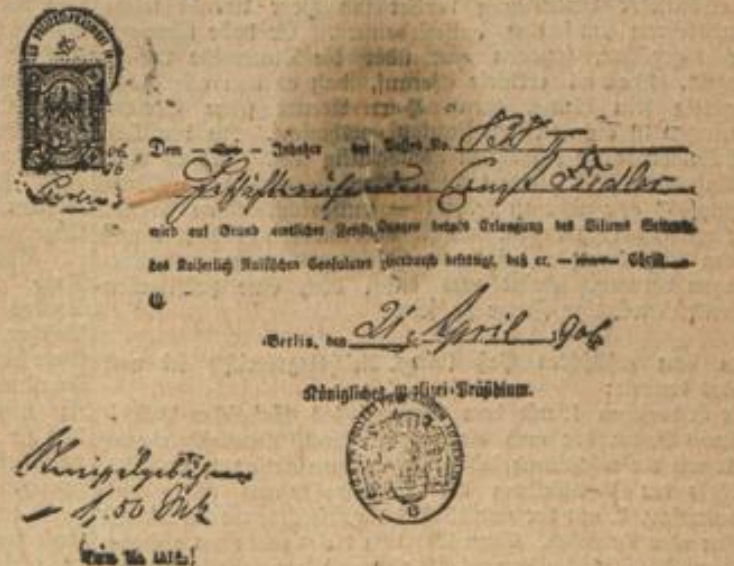 Dem — Inhaber des Passes No. 838 II a
Geschäftsreisenden Ernst Fiedler
wird auf Grund amtlicher Feststellungen behufs Erlangung des Visums Seitens
des Kaiserlich Russischen Consulates hierdurch bestätigt, daß er, — Christ
ist.
Berlin, den 21. April 906
Königliches Polizei-Präsidium.
Stempelgebühr
1,50 Mk